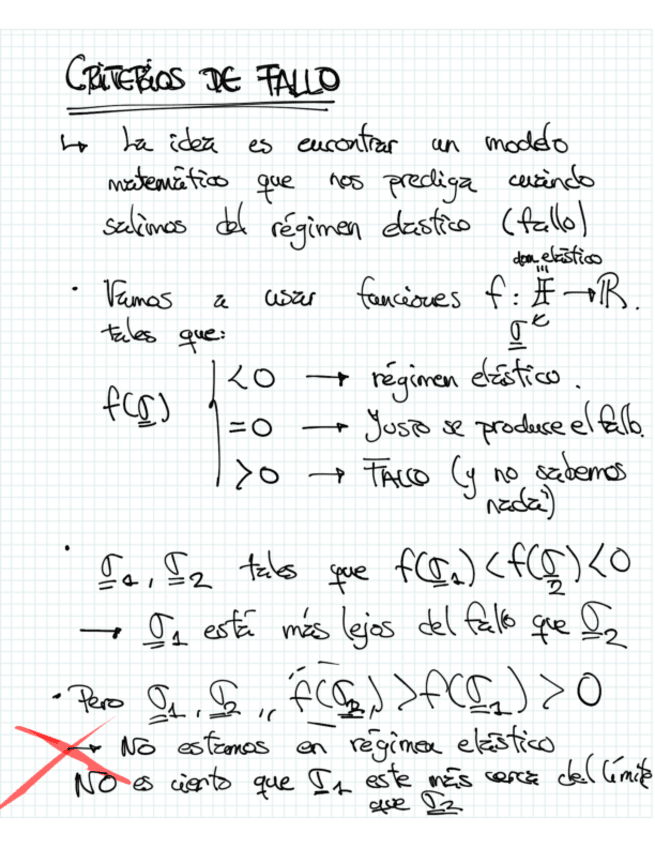 CRITERIOS DE FALLO
↳ La idea es encontrar un modelo
matemático que nos prediga cuándo
salimos del régimen elástico (fallo)
dom elástico
• Vamos a usar funciones f: E → ℝ.
σ
tales que:
f(σ) < 0 → régimen elástico.
= 0 → Justo se produce el fallo.
> 0 → FALLO (y no sabemos
nada)
• σ1, σ2 tales que f(σ1) < f(σ2) < 0
→ σ1 está más lejos del fallo que σ2
• Pero σ1, σ2 ,, f(σ2) > f(σ1) > 0
→ No estamos en régimen elástico
NO es cierto que σ1 este más cerca del límite
que σ2